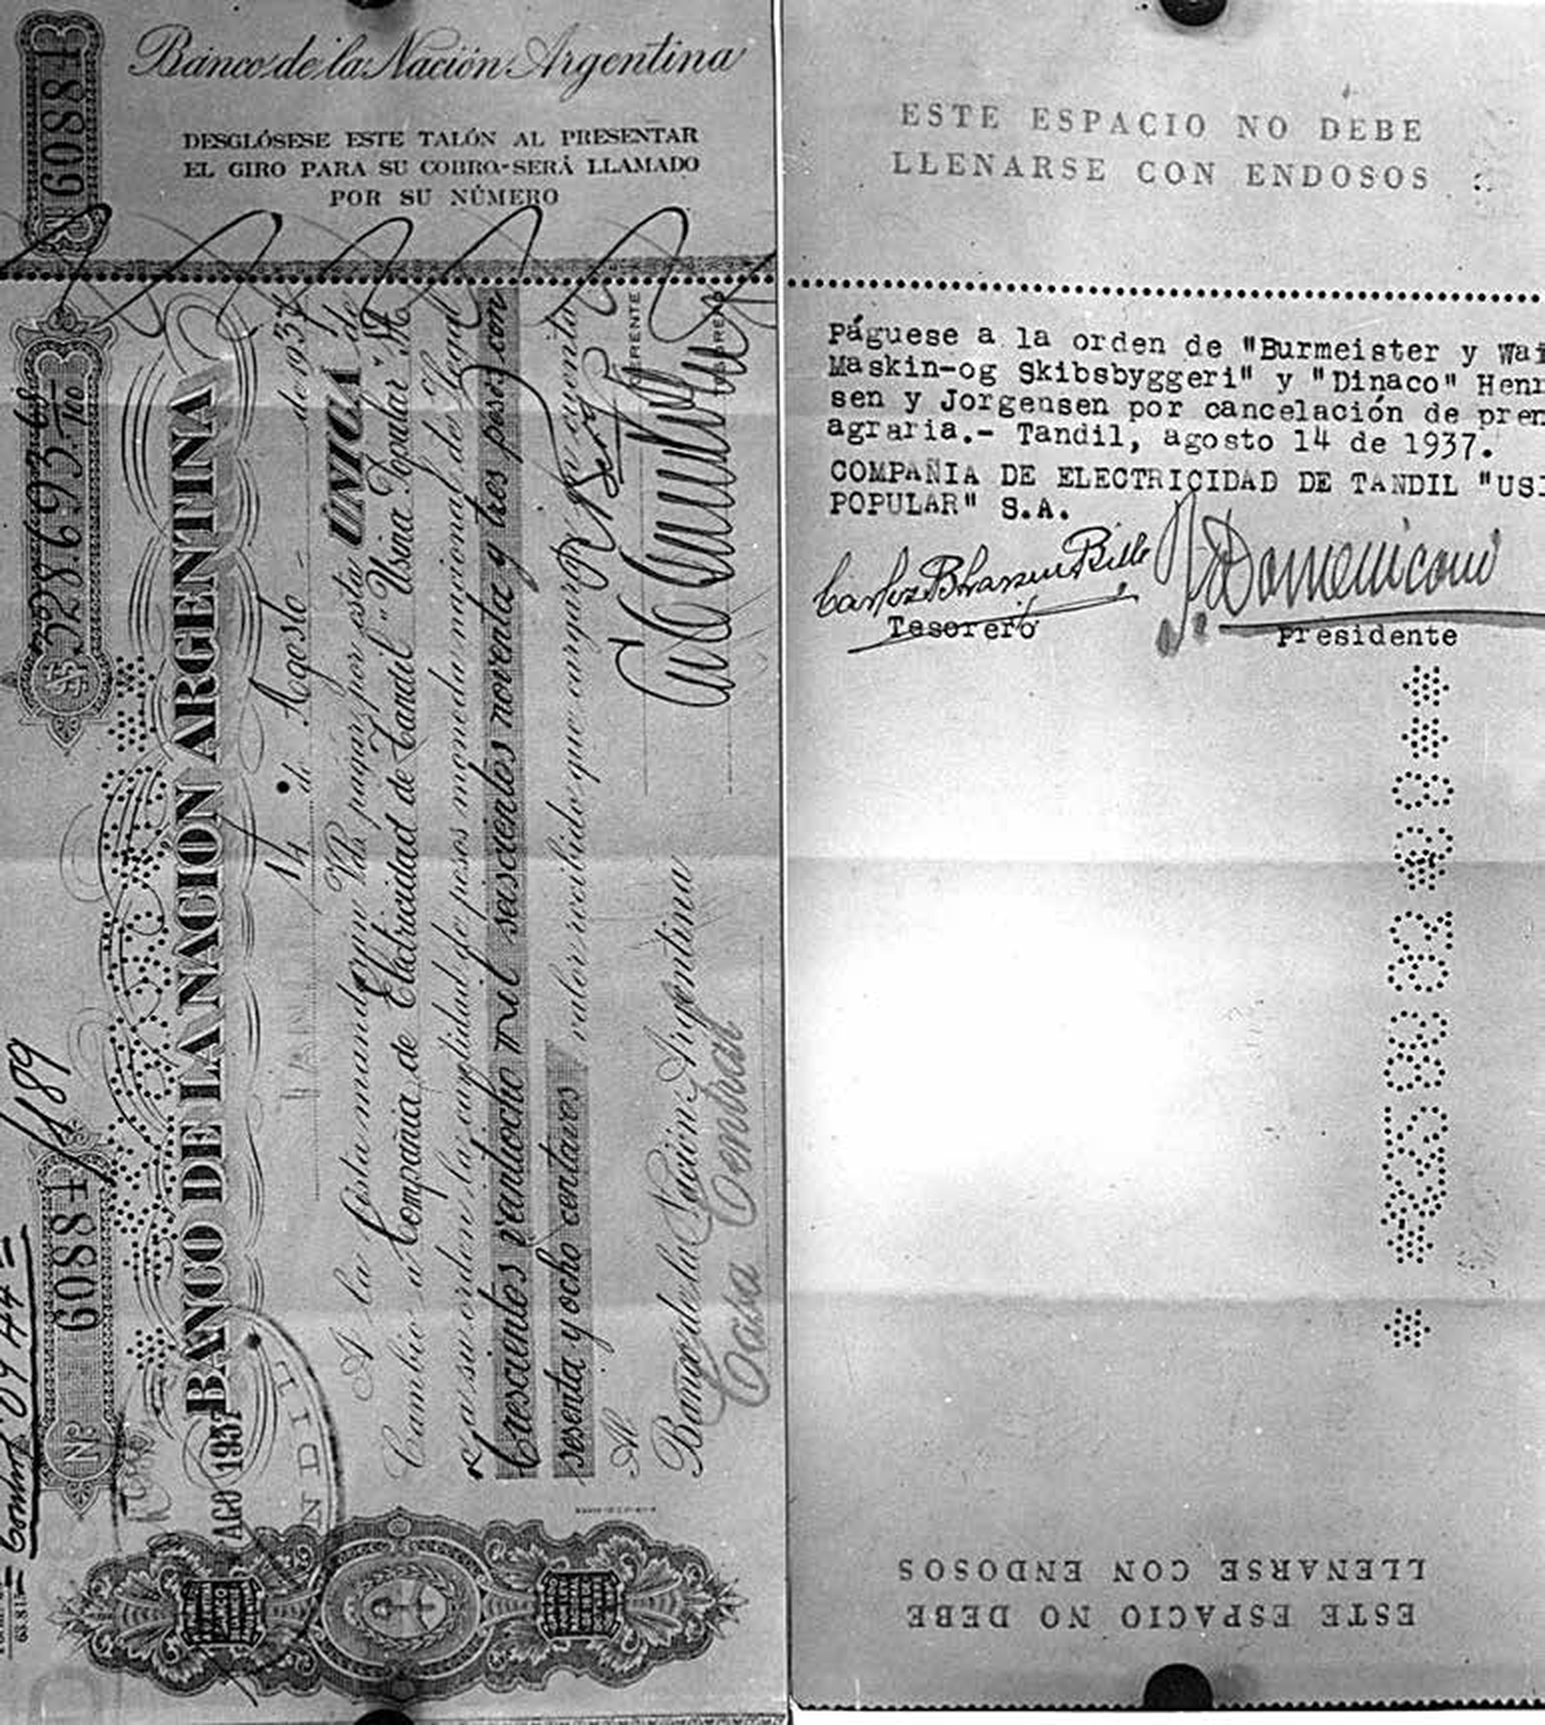 Banco de la Nación Argentina
DESGLÓSESE ESTE TALÓN AL PRESENTAR
EL GIRO PARA SU COBRO-SERÁ LLAMADO
POR SU NÚMERO
Nº 60881
$ 328.693.
BANCO DE LA NACION ARGENTINA
Nº 60881
1189
AGO 1937
TANDIL
14 de Agosto de 1937
A la vista mandamos Vds. pagar por esta ÚNICA de
Cambio a Compañia de Electricidad de Tandil "Usina Popular" S.A.
ó a su orden la cantidad de pesos moneda nacional de c/legal
Trescientos veintiocho mil seiscientos noventa y tres pesos con
sesenta y ocho centavos valor recibido que cargarán en cuenta
Al
Banco de la Nación Argentina
Casa Central
GERENTE
ESTE ESPACIO NO DEBE
LLENARSE CON ENDOSOS
Páguese a la orden de "Burmeister y Wai
Maskin-og Skibsbyggeri" y "Dinaco" Henr
sen y Jorgensen por cancelación de pren
agraria.- Tandil, agosto 14 de 1937.
COMPAÑIA DE ELECTRICIDAD DE TANDIL "USI
POPULAR" S.A.
Tesorero
Domeniconi
Presidente
ESTE ESPACIO NO DEBE
LLENARSE CON ENDOSOS